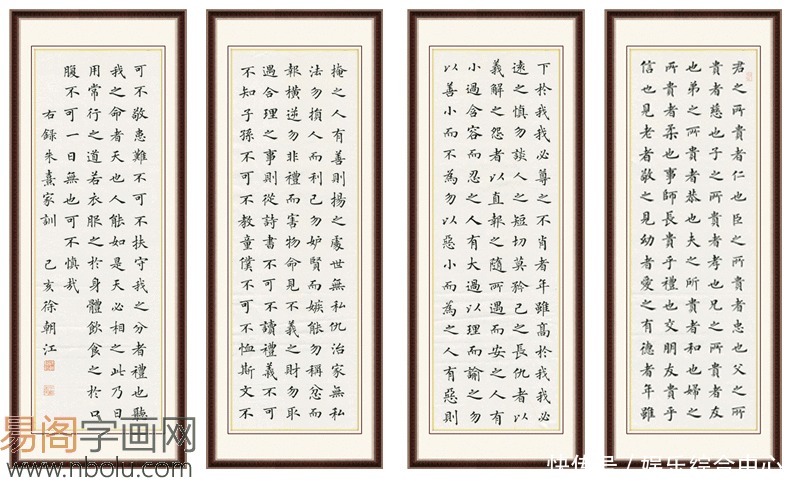 君之所貴者仁也臣之所貴者忠也父之所
貴者慈也子之所貴者孝也兄之所貴者友
也弟之所貴者恭也夫之所貴者和也婦之
所貴者柔也事師長貴乎禮也交朋友貴乎
信也見老者敬之見幼者愛之有德者年雖
下於我我必尊之不肖者年雖高於我我必
遠之慎勿談人之短切莫矜己之長仇者以
義解之怨者以直報之隨所遇而安之人有
小過含容而忍之人有大過以理而諭之勿
以善小而不為勿以惡小而為之人有惡則
掩之人有善則揚之處世無私仇治家無私
法勿損人而利己勿妒賢而嫉能勿稱忿而
報橫逆勿非禮而害物命見不義之財勿取
遇合理之事則從詩書不可不讀禮義不可
不知子孫不可不教童僕不可不恤斯文不
可不敬患難不可不扶守我之分者禮也聽
我之命者天也人能如是天必相之此乃日
用常行之道若衣服之於身體飲食之於口
腹不可一日無也可不慎哉
右録朱熹家訓 己亥徐朝江
易阁字画网
www.nbolu.com
快传号/娱乐综合中心